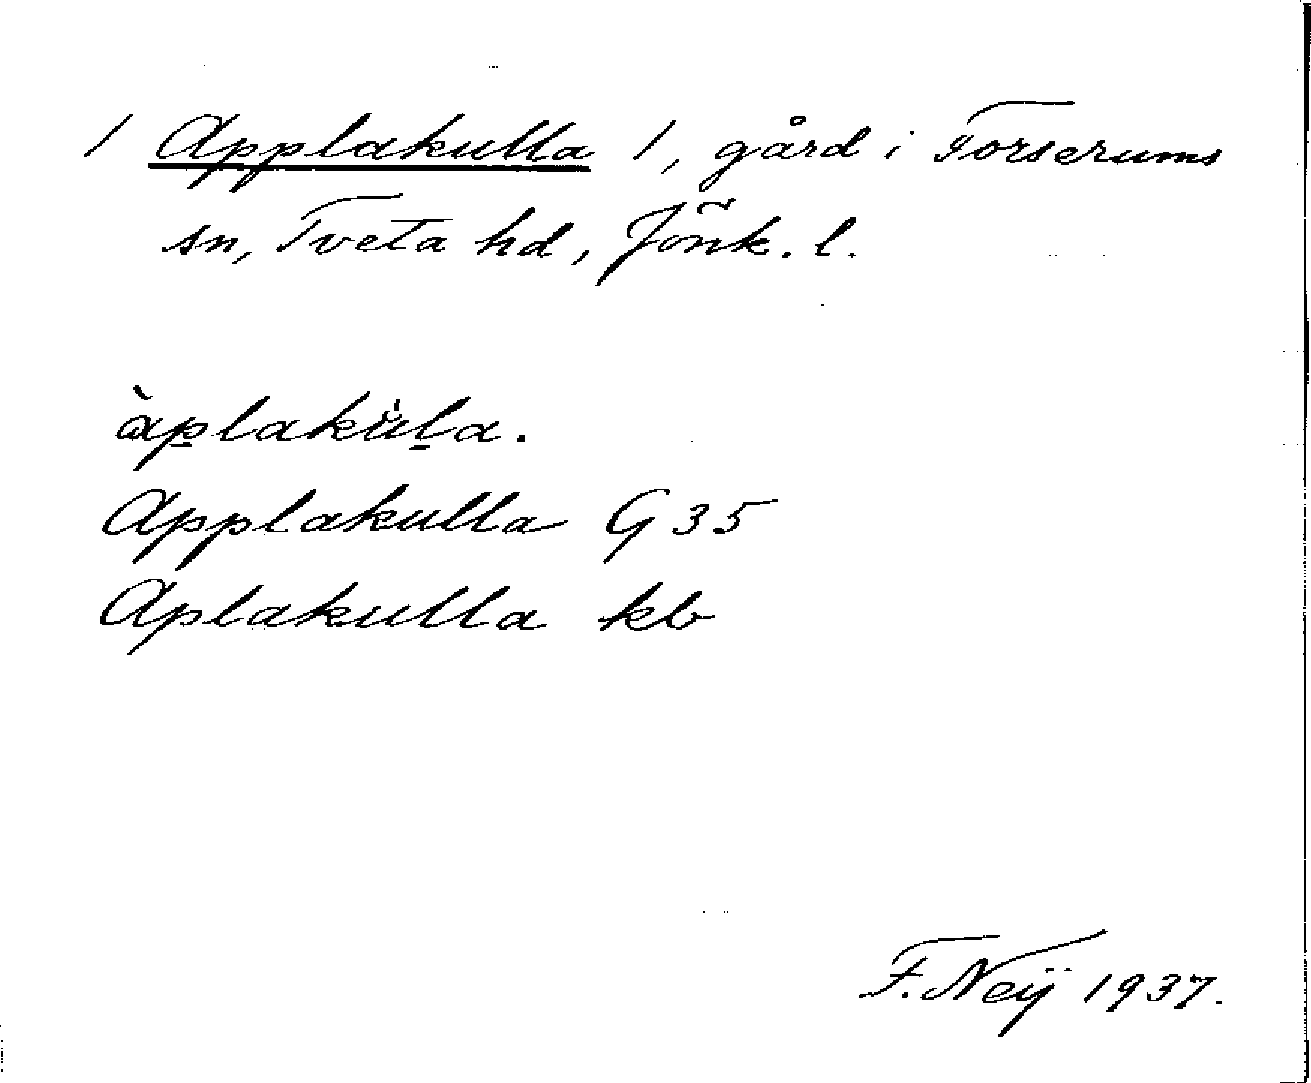 1 Applakulla 1, gård i Forserums
sn, Tveta hd, Jönk. l.
àp̲lakùl̲a.
Applakulla G 35
Aplakulla kb
F. Neÿ 1937.